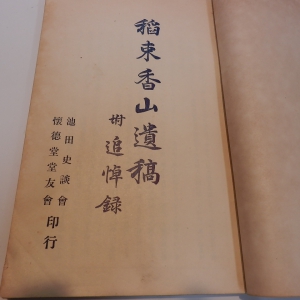 稻束香山遺稿
坿追悼録
池田史談會
懷德堂堂友會
印行